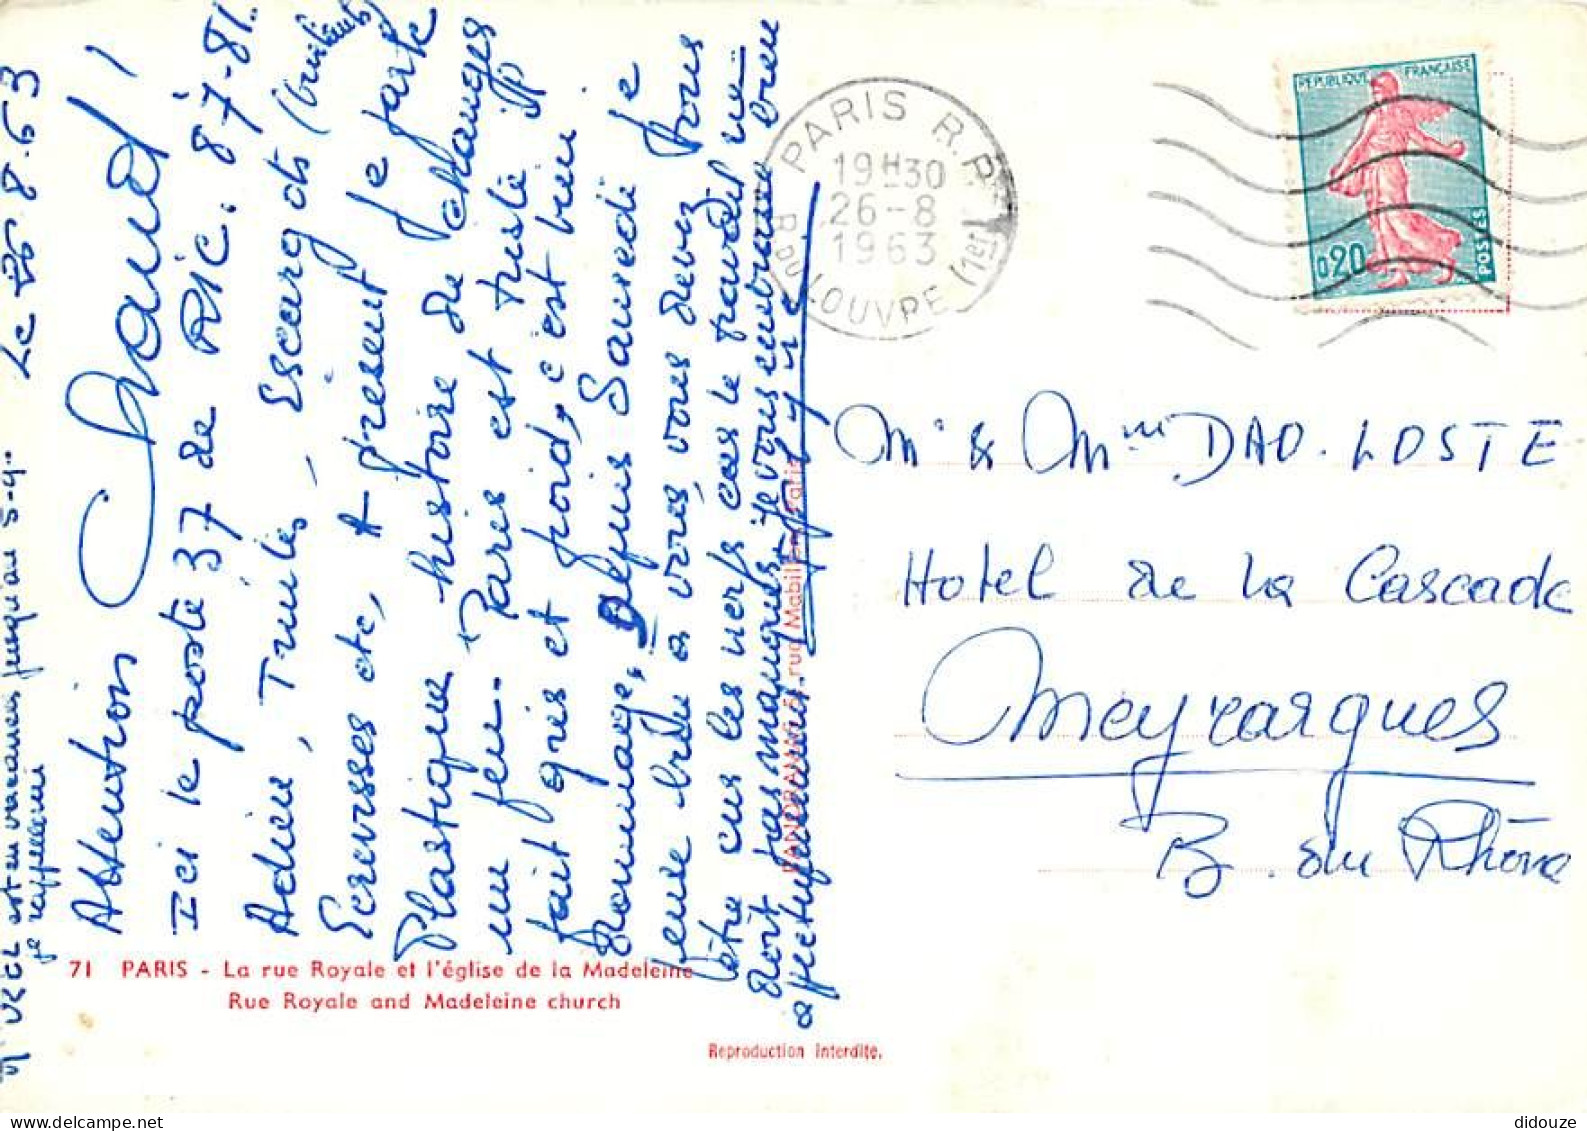 Le 26 8-63
Attention Chaud !
Ici le poste 37 de RIC. 87-81..
Adieu, Truites, Escargots (
Ecrevisses etc, A présent je parle
Plastique, histoire de changer
un peu. Paris est triste il
fait gris et froid, c'est bien
dommage, Depuis Samedi je
pense bien à vous, vous devez tous
être sur les nerfs car le travail ne
doit pas manquer. Je vous embrasse bien
affectueusement
est en vacances jusqu'au 5-9..
je rappellerai
71 PARIS - La rue Royale et l'église de la Madeleine
Rue Royale and Madeleine church
Reproduction interdite.
rue Mabillon, Paris
PARIS R.P.
19H30
26-8
1963
R DU LOUVRE (1er)
REPUBLIQUE FRANÇAISE
0,20
POSTES
Mr & Mme DAO. LOSTE
Hotel de la Cascade
Meyrargues
B. du Rhône
didouze